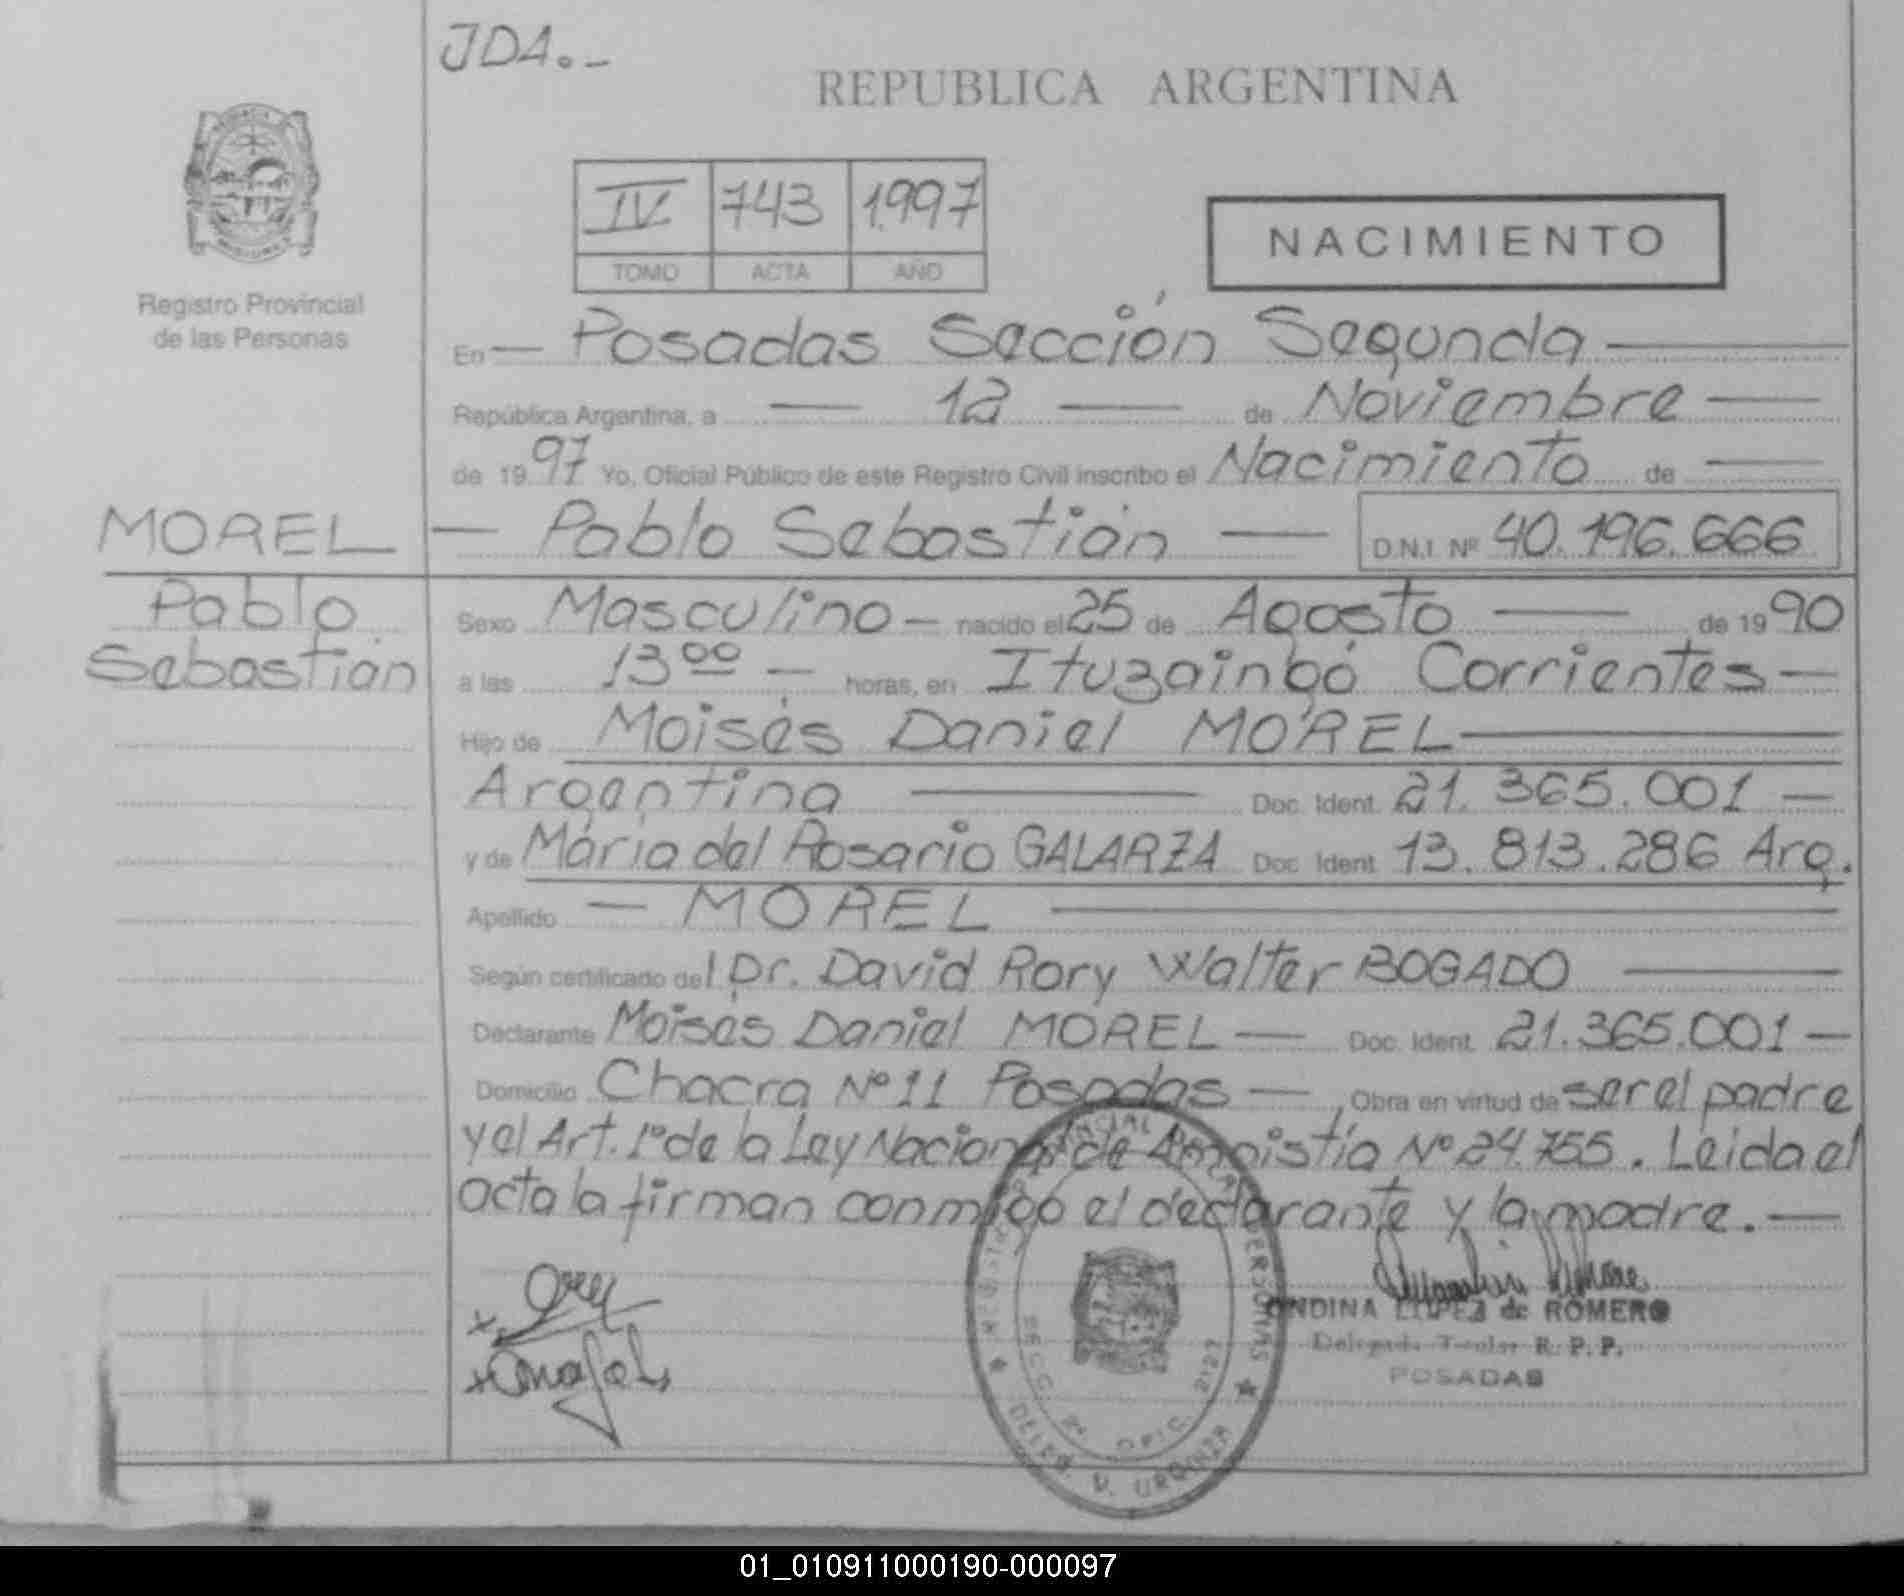 JDA.-
REPUBLICA ARGENTINA
IV 743 1.997
TOMO ACTA AÑO
NACIMIENTO
Registro Provincial
de las Personas
En — Posadas Sección Segunda —
República Argentina, a — 12 — de Noviembre —
de 1997 Yo, Oficial Público de este Registro Civil inscribo el Nacimiento de —
MOREL — Pablo Sebastián — D.N.I. Nº 40.196.666
Pablo
Sebastián
Sexo Masculino — nacido el 25 de Agosto — de 1990
a las 13 00 — horas, en Ituzaingó Corrientes —
Hijo de Moisés Daniel MOREL —
Argentina — Doc. Ident. 21.365.001 —
y de María del Rosario GALARZA Doc. Ident. 13.813.286 Arg.
Apellido — MOREL —
Según certificado del Dr. David Rory Walter BOGADO —
Declarante Moisés Daniel MOREL — Doc. Ident. 21.365.001 —
Domicilio Chacra Nº 11 Posadas —, Obra en virtud de ser el padre
y el Art. 1º de la Ley Nacional de Amnistía Nº 24.755. Leida el
acta la firman conmigo el declarante y la madre. —
REGISTRO PROVINCIAL DE LAS PERSONAS
SECC. 2ª OFIC. 2127
DELEG. V. URQUIZA
ONDINA LOPEZ de ROMERO
Delegada Titular R. P. P.
POSADAS
01_010911000190-000097